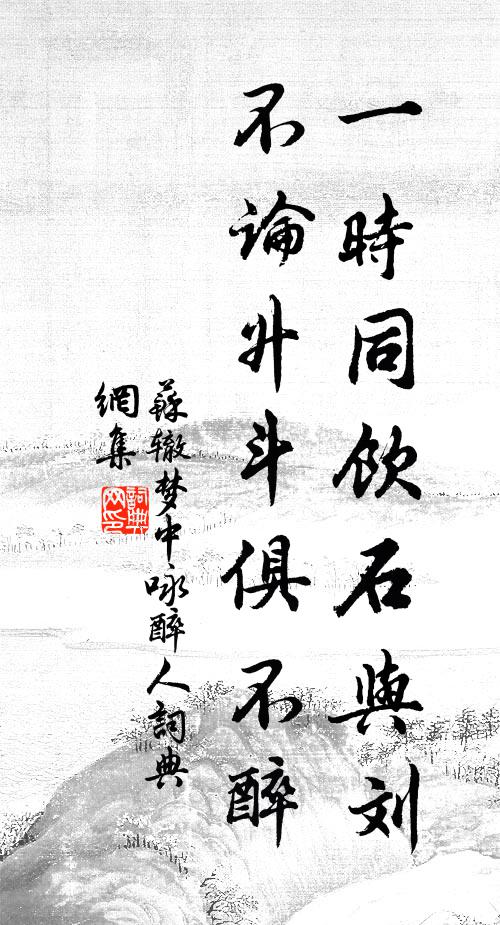 一時同飲石與刘
不論升斗俱不醉
蘇辙梦中咏醉人詞典
網集
詞典
网印